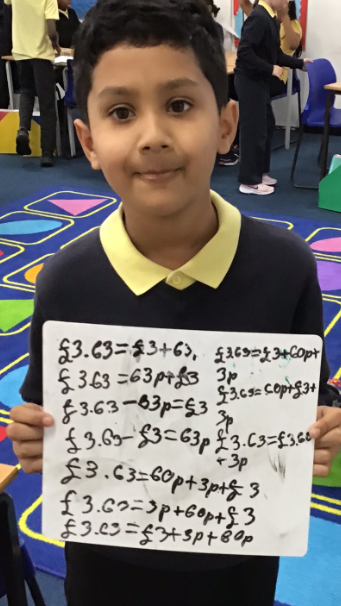 £3.63=£3+63.
£3.63=63p+£3
£3.63-63p=£3
£3.63-£3=63p
£3.63=60p+3p+£3
£3.63=3p+60p+£3
£3.63=£3+3p+60p
£3.63=£3+60p+
3p
£3.63=60p+£3+
3p
£3.63=£3.60
+3p